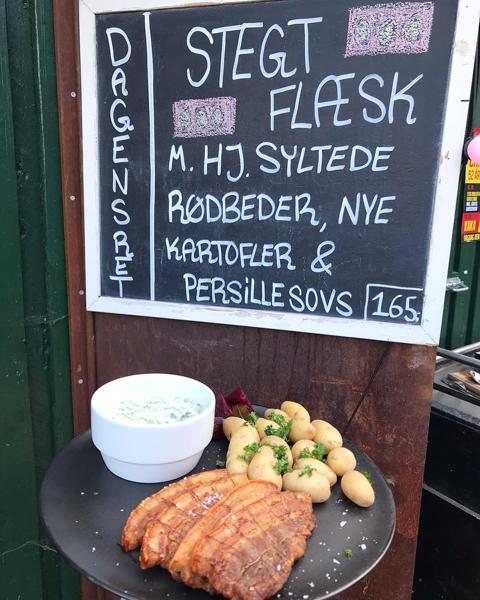 DAGENS RET
STEGT
FLÆSK
M. HJ. SYLTEDE
RØDBEDER, NYE
KARTOFLER &
PERSILLESOVS 165.